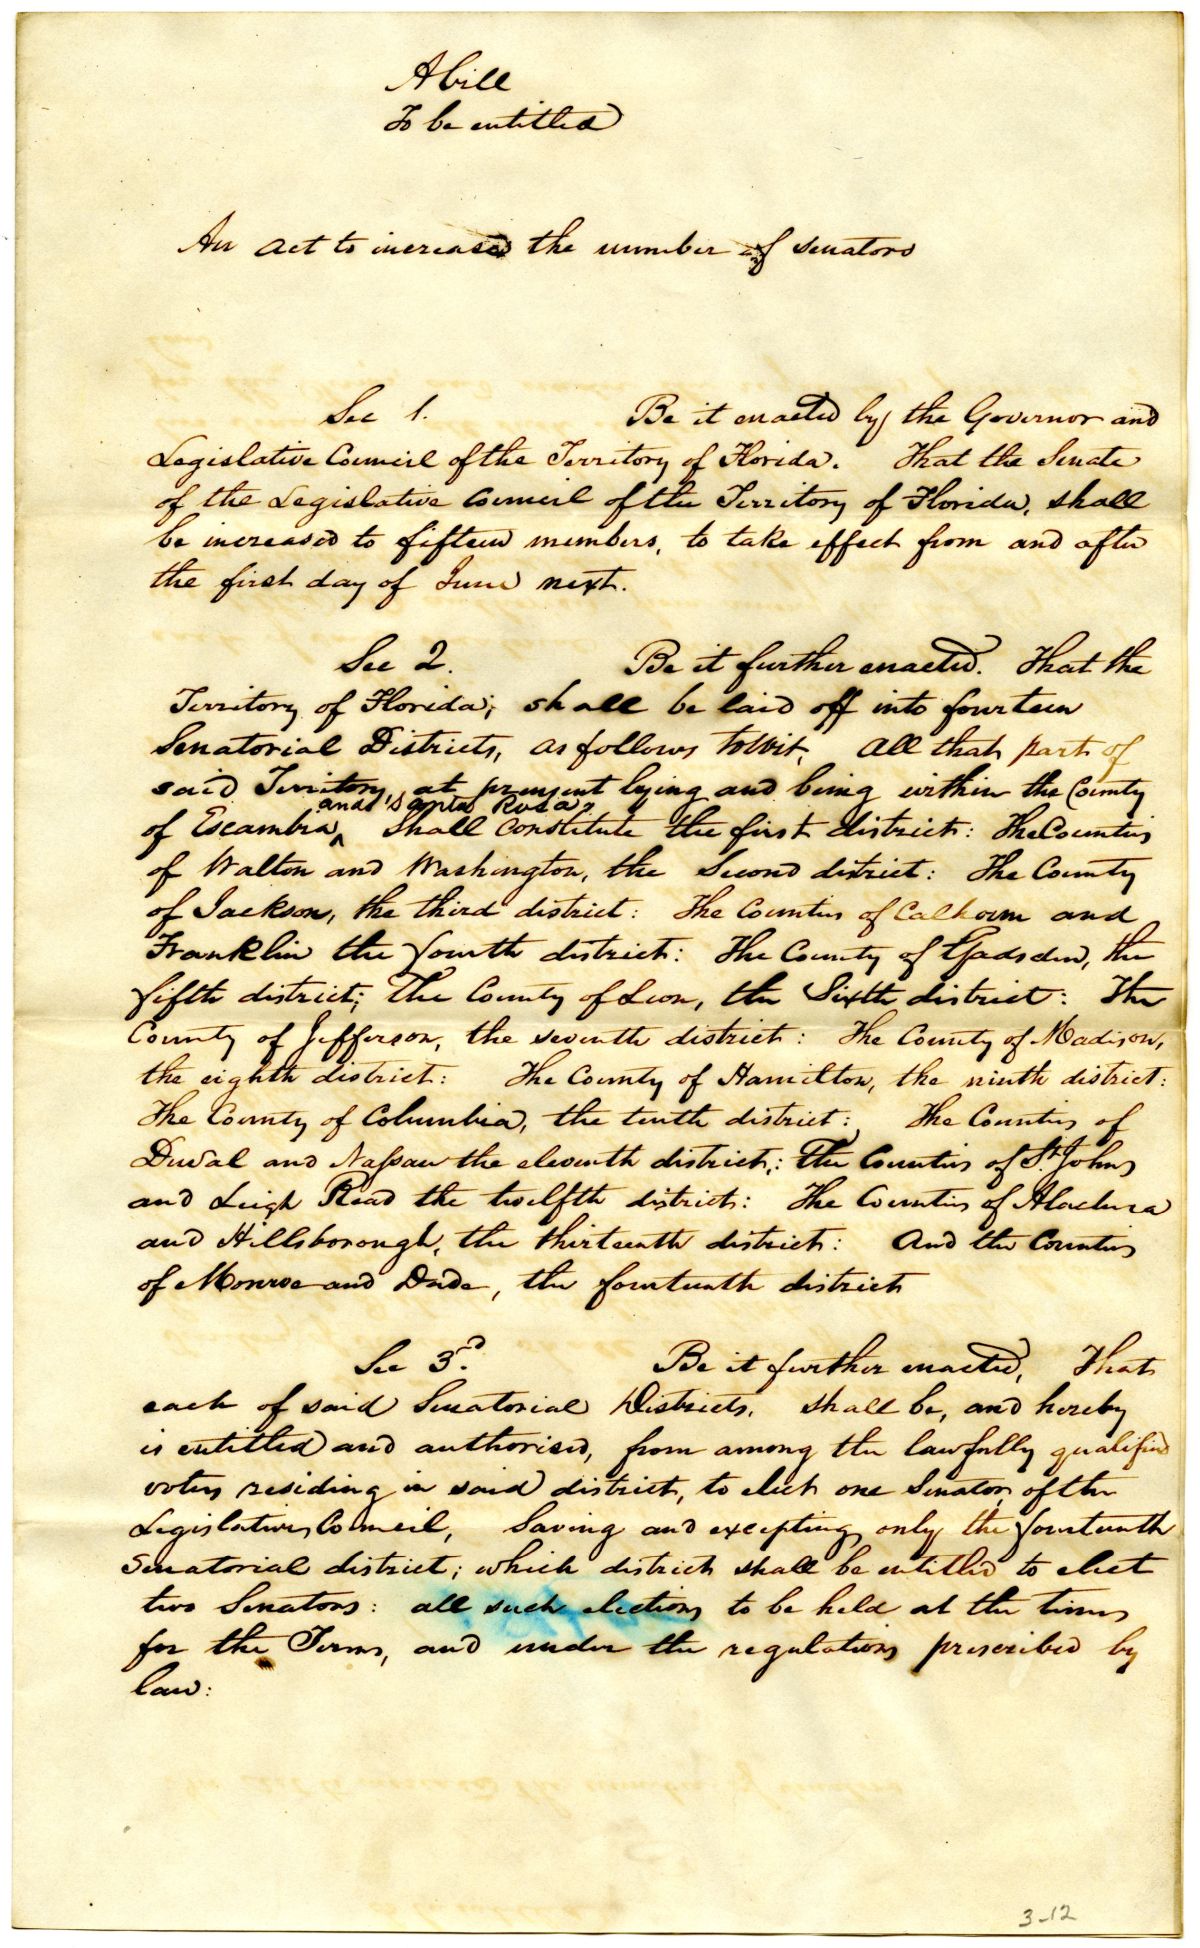 A bill
To be entitled
An act to increase the number of senators
Sec 1. Be it enacted by the Governor and
Legislative Council of the Territory of Florida. That the Senate
of the Legislative Council of the Territory of Florida, shall
be increased to fifteen members, to take effect from and after
the first day of June next.
Sec 2. Be it further enacted. That the
Territory of Florida; shall be laid off into fourteen
Senatorial Districts, as follows towit, all that part of
said Territory, at present lying and being within the County
and Santa Rosa,
of Escambia ^ Shall constitute the first district: The Counties
of Walton and Washington, the Second district: The County
of Jackson, the third district: The Counties of Calhoun and
Franklin the fourth district: The County of Gadsden, the
fifth district; The County of Leon, the Sixth district: The
County of Jefferson, the seventh district: The County of Madison,
the eighth district: The County of Hamilton, the ninth district:
The County of Columbia, the tenth district: The Counties of
Duval and Nassau the eleventh district: The Counties of St. Johns
and Leigh Read the twelfth district: The Counties of Alachua
and Hillsborough, the thirteenth district: And the Counties
of Monroe and Dade, the fourteenth district
Sec 3rd. Be it further enacted, That
each of said Senatorial Districts, shall be, and hereby
is entitled and authorised, from among the lawfully qualified
voters residing in said district, to elect one Senator of the
Legislative Council, Saving and excepting only the fourteenth
Senatorial district; which district shall be entitled to elect
two Senators: all such elections to be held at the times
for the Terms, and under the regulations prescribed by
law:
3-12